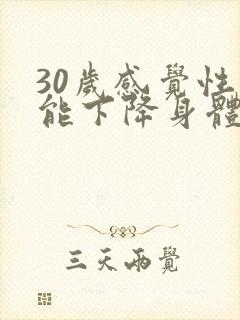 30歲感覺性
能下降身體
三天兩覺